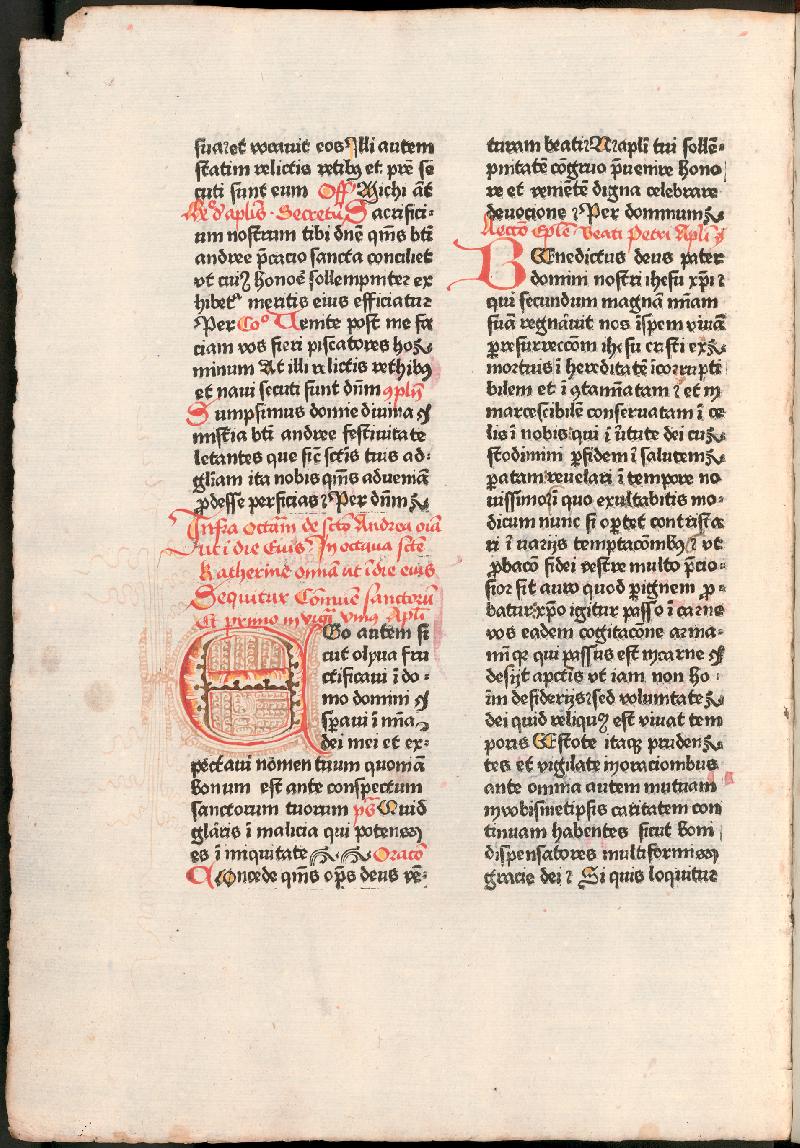 sua ꝛ et vocauit eos Illi autem
statim relictis retibꝰ et p̄re se
cuti sunt eum Off̄ Michi āt
Re͛ d' aplīs · Secretū Sacrifici⸗
um nostrum tibi dn̄e qm̄s bti̅
andree p̄catio sancta conciliet
vt cuiꝰ honoē sollempniter ex
hibetᷣ meritis eius efficiatur
Per Coº Uenite post me fa
ciam vos fieri piscatores ho
minum At illi relictis rethibꝰ
et naui secuti sunt dn̄m ꝯplīʒ
Sumpsimus domīe diuina
mistīa bti̅ andree festiuitate
letantes que sic̄ scti̅s tuis ad⸗
gl̄iam ita nobis qm̄s ad veniā
ꝓdesse perficias ꝛ Per dn̄m
Infra octām de scto̅ Andrea oīa
ut ī die Euiꝰ In octaua scte̅
Katherine omīa ut ī die eius
Sequitur Com̄ue sanctorū
Et primo in vigī vniꝰ Apli̅
EGo autem si
cut oliua fru
ctificaui ī do⸗
mo domini
sꝑaui ī mīa
dei mei et ex⸗
pectaui nomen tuum quoniā
bonum est ante conspectum
sanctorum tuorum pš Quid
glāris ī malicia qui potens
es ī iniquitate Oraco̅
Concede qm̄s op̄s deus ve̅⸗
turam beati N apli̅ tui solle̅⸗
pnitatē cōgruo p̄uenire hono
re et venie̅te digna celebrare
deuocione ꝛ Per dominum
Lecco̅ Epl̄e Beati Petri Apli̅
BEnedictus deus pater
domini nostri ihesu xp̄i ꝛ
qui secundum magnā mīam
suā regnāuit nos īspem viuā
ꝑ resurreccōm ihesu cristi ex
mortuis ī hereditatē īcorrupti
bilem et ī ꝯtamīatam ꝛ et in
marcescibilē conseruatam ī ce
lis ī nobis qui ī ūtute dei cu
stodimini ꝑ fidem ī salutem
ꝑatam reuelari ī tempore no
uissimo ī quo exultabitis mo⸗
dicum nunc si oꝑtet contrista
ri ī varijs temptaco̅mbꝰ ꝛ vt
ꝓbaco̅ fidei vestre multo p̄cio⸗
sior sit auro quod ꝑ ignem ꝓ⸗
batur xp̄o igitur passo ī carne
vos eadem cogitaco̅ne arma⸗
mīꝗ qui passus est in carne
desijt a pcti̅s vt iam non ho⸗
īm desiderijs sed voluntate
dei quid reliquꝰ est viuat tem
poris Estote itaqꝫ pruden
tes et vigilate in oracionibus
ante omnia autem mutuam
in vobismetipsis caritatem con
tinuam habentes sicut boni
dispensatores multiformis
gracie dei ꝛ Si quis loquitur